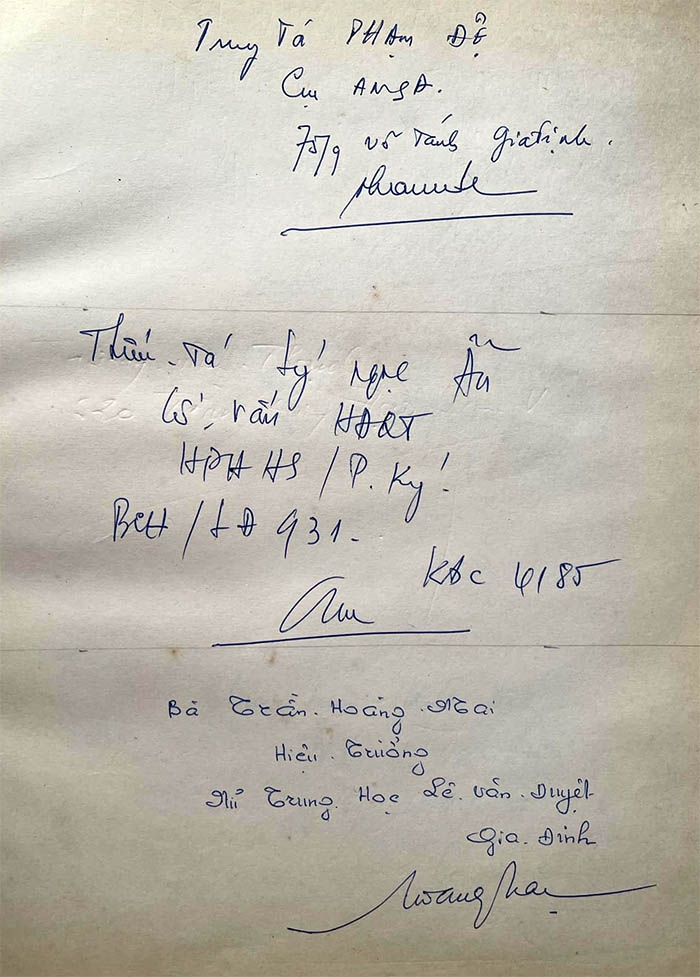 Trung Tá PHẠM ĐỆ
Cục ANQĐ.
75/9 Võ Tánh Gia Định.
Thiếu Tá Lý Ngọc Ẩn
Cố vấn HĐQT
HPHHS / P. Ký
BCH / LĐ 931.
KBC 4185
Bà Trần Hoàng Mai
Hiệu Trưởng
Nữ Trung Học Lê Văn Duyệt
Gia Đình
Hoang Mai